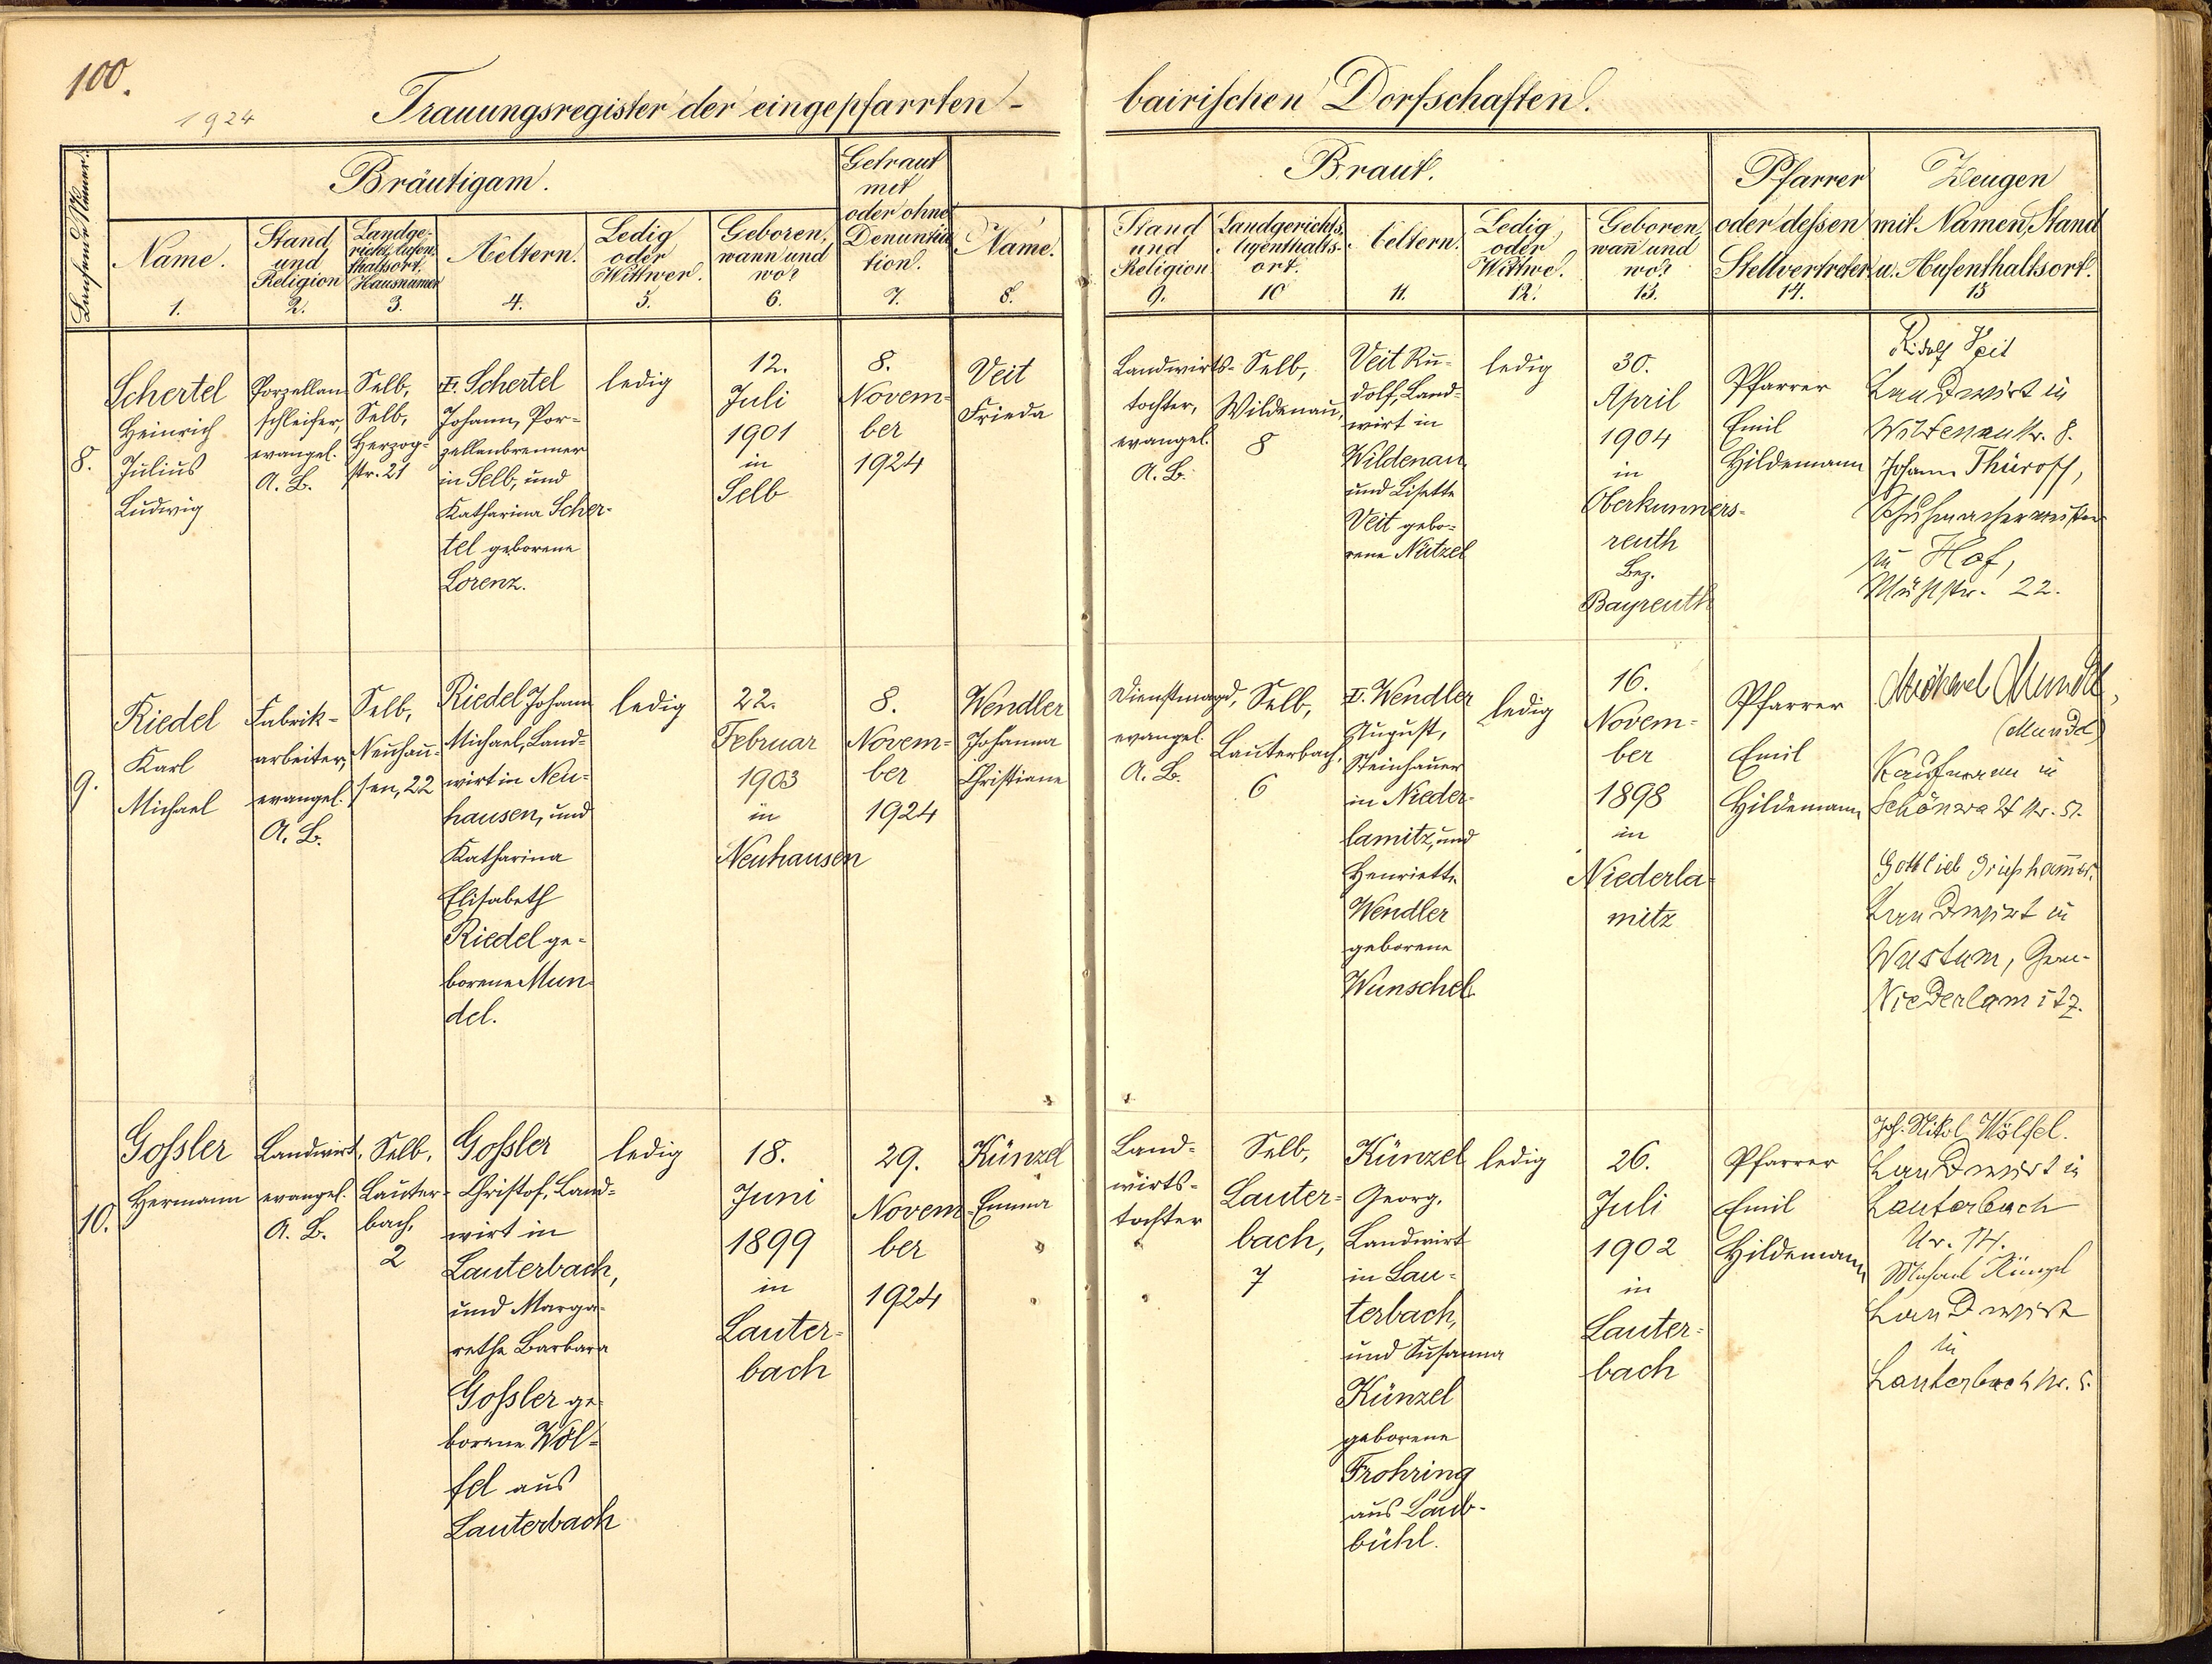 100.
1924
Trauungsregister der eingepfarrten-
bairischen Dorfschaften.
Laufende Numer.
Bräutigam.
Getraut
mit
oder ohne
Denuntia
tion.
7.
Name.
1.
Stand
und
Religion
2.
Landge-
richt, Aufen-
thaltsort.
Hausnumer
3.
Aeltern.
4.
Ledig
oder
Wittwer.
5.
Geboren,
wann und
wo?
6.
Name.
8.
Braut.
Stand
und
Religion
9.
Landgerichts,
Augenthalts-
ort.
10
Aeltern.
11.
Ledig
oder
Wittwe.
12.
Geboren,
wan̄ und
wo?
13.
Pfarrer
oder dessen
Stellvertreter
14.
Zeugen
mit Namen, Stand
u. Aufenthaltsort.
15
8.
Schertel
Heinrich
Julius
Ludwig
Porzellan-
schleifer,
evangel.
A. B.
Selb,
Selb,
Herzog-
str. 21
II. Schertel
Johann, Por-
zellanbrenner
in Selb, und
Katharina Scher-
tel geborene
Lorenz.
ledig
12.
Juli
1901
in
Selb
8.
Novem-
ber
1924
Veit
Frieda
Landwirts-
tochter,
evangel.
A. B.
Selb,
Wildenau,
8
Veit Ru-
dolf, Land-
wirt in
Wildenau
und Lisette
Veit gebo-
rene Nützel
ledig
30.
April
1904
in
Oberkunners-
reuth
Bez.
Bayreuth
Pfarrer
Emil
Hildemann
Rudolf Veit
Landwirt in
Wildenau Nr. 8.
Johann Thüroff,
Schuhmachermeister
in Hof,
Mühlstr. 22.
9.
Riedel
Karl
Michael
Fabrik-
arbeiter,
evangel.
A. B.
Selb,
Neuhau-
sen, 22
Riedel Johann
Michael, Land-
wirt in Neu-
hausen, und
Katharina
Elisabeth
Riedel ge-
borene Mun-
del.
ledig
22.
Februar
1903
in
Neuhausen
8.
Novem-
ber
1924
Wendler
Johanna
Christiane
Dienstmagd,
evangel.
A. B.
Selb,
Lauterbach,
6
II. Wendler
August,
Steinhauer
in Nieder-
lamitz, und
Henriette
Wendler
geborene
Wunschel.
ledig
16.
Novem-
ber
1898
in
Niederla-
mitz
Pfarrer
Emil
Hildemann
Michael Mundel,
Kaufmann in
Schönwald Nr. 51.
Gottlieb Griesham̄er,
Landwirt in
Wustum, Gem.
Niederlamitz.
10.
Gossler
Hermann
Landwirt,
evangel.
A. B.
Selb,
Lauter-
bach,
2
Gossler
Christof, Land-
wirt in
Lauterbach,
und Marga-
rethe Barbara
Gossler ge-
borene Wöl-
fel aus
Lauterbach
ledig
18.
Juni
1899
in
Lauter-
bach
29.
Novem-
ber
1924
Künzel
Emma
Land-
wirts-
tochter
Selb,
Lauter-
bach,
7
Künzel
Georg,
Landwirt
in Lau-
terbach,
und Susanna
Künzel
geborene
Frohring
aus Laub-
bühl.
ledig
26.
Juli
1902
in
Lauter-
bach
Pfarrer
Emil
Hildemann
Joh. Nikol Wölfel.
Landwirt in
Lauterbach
Nr. 14.
Michael Künzel
Landwirt
in
Lauterbach Nr. 5.